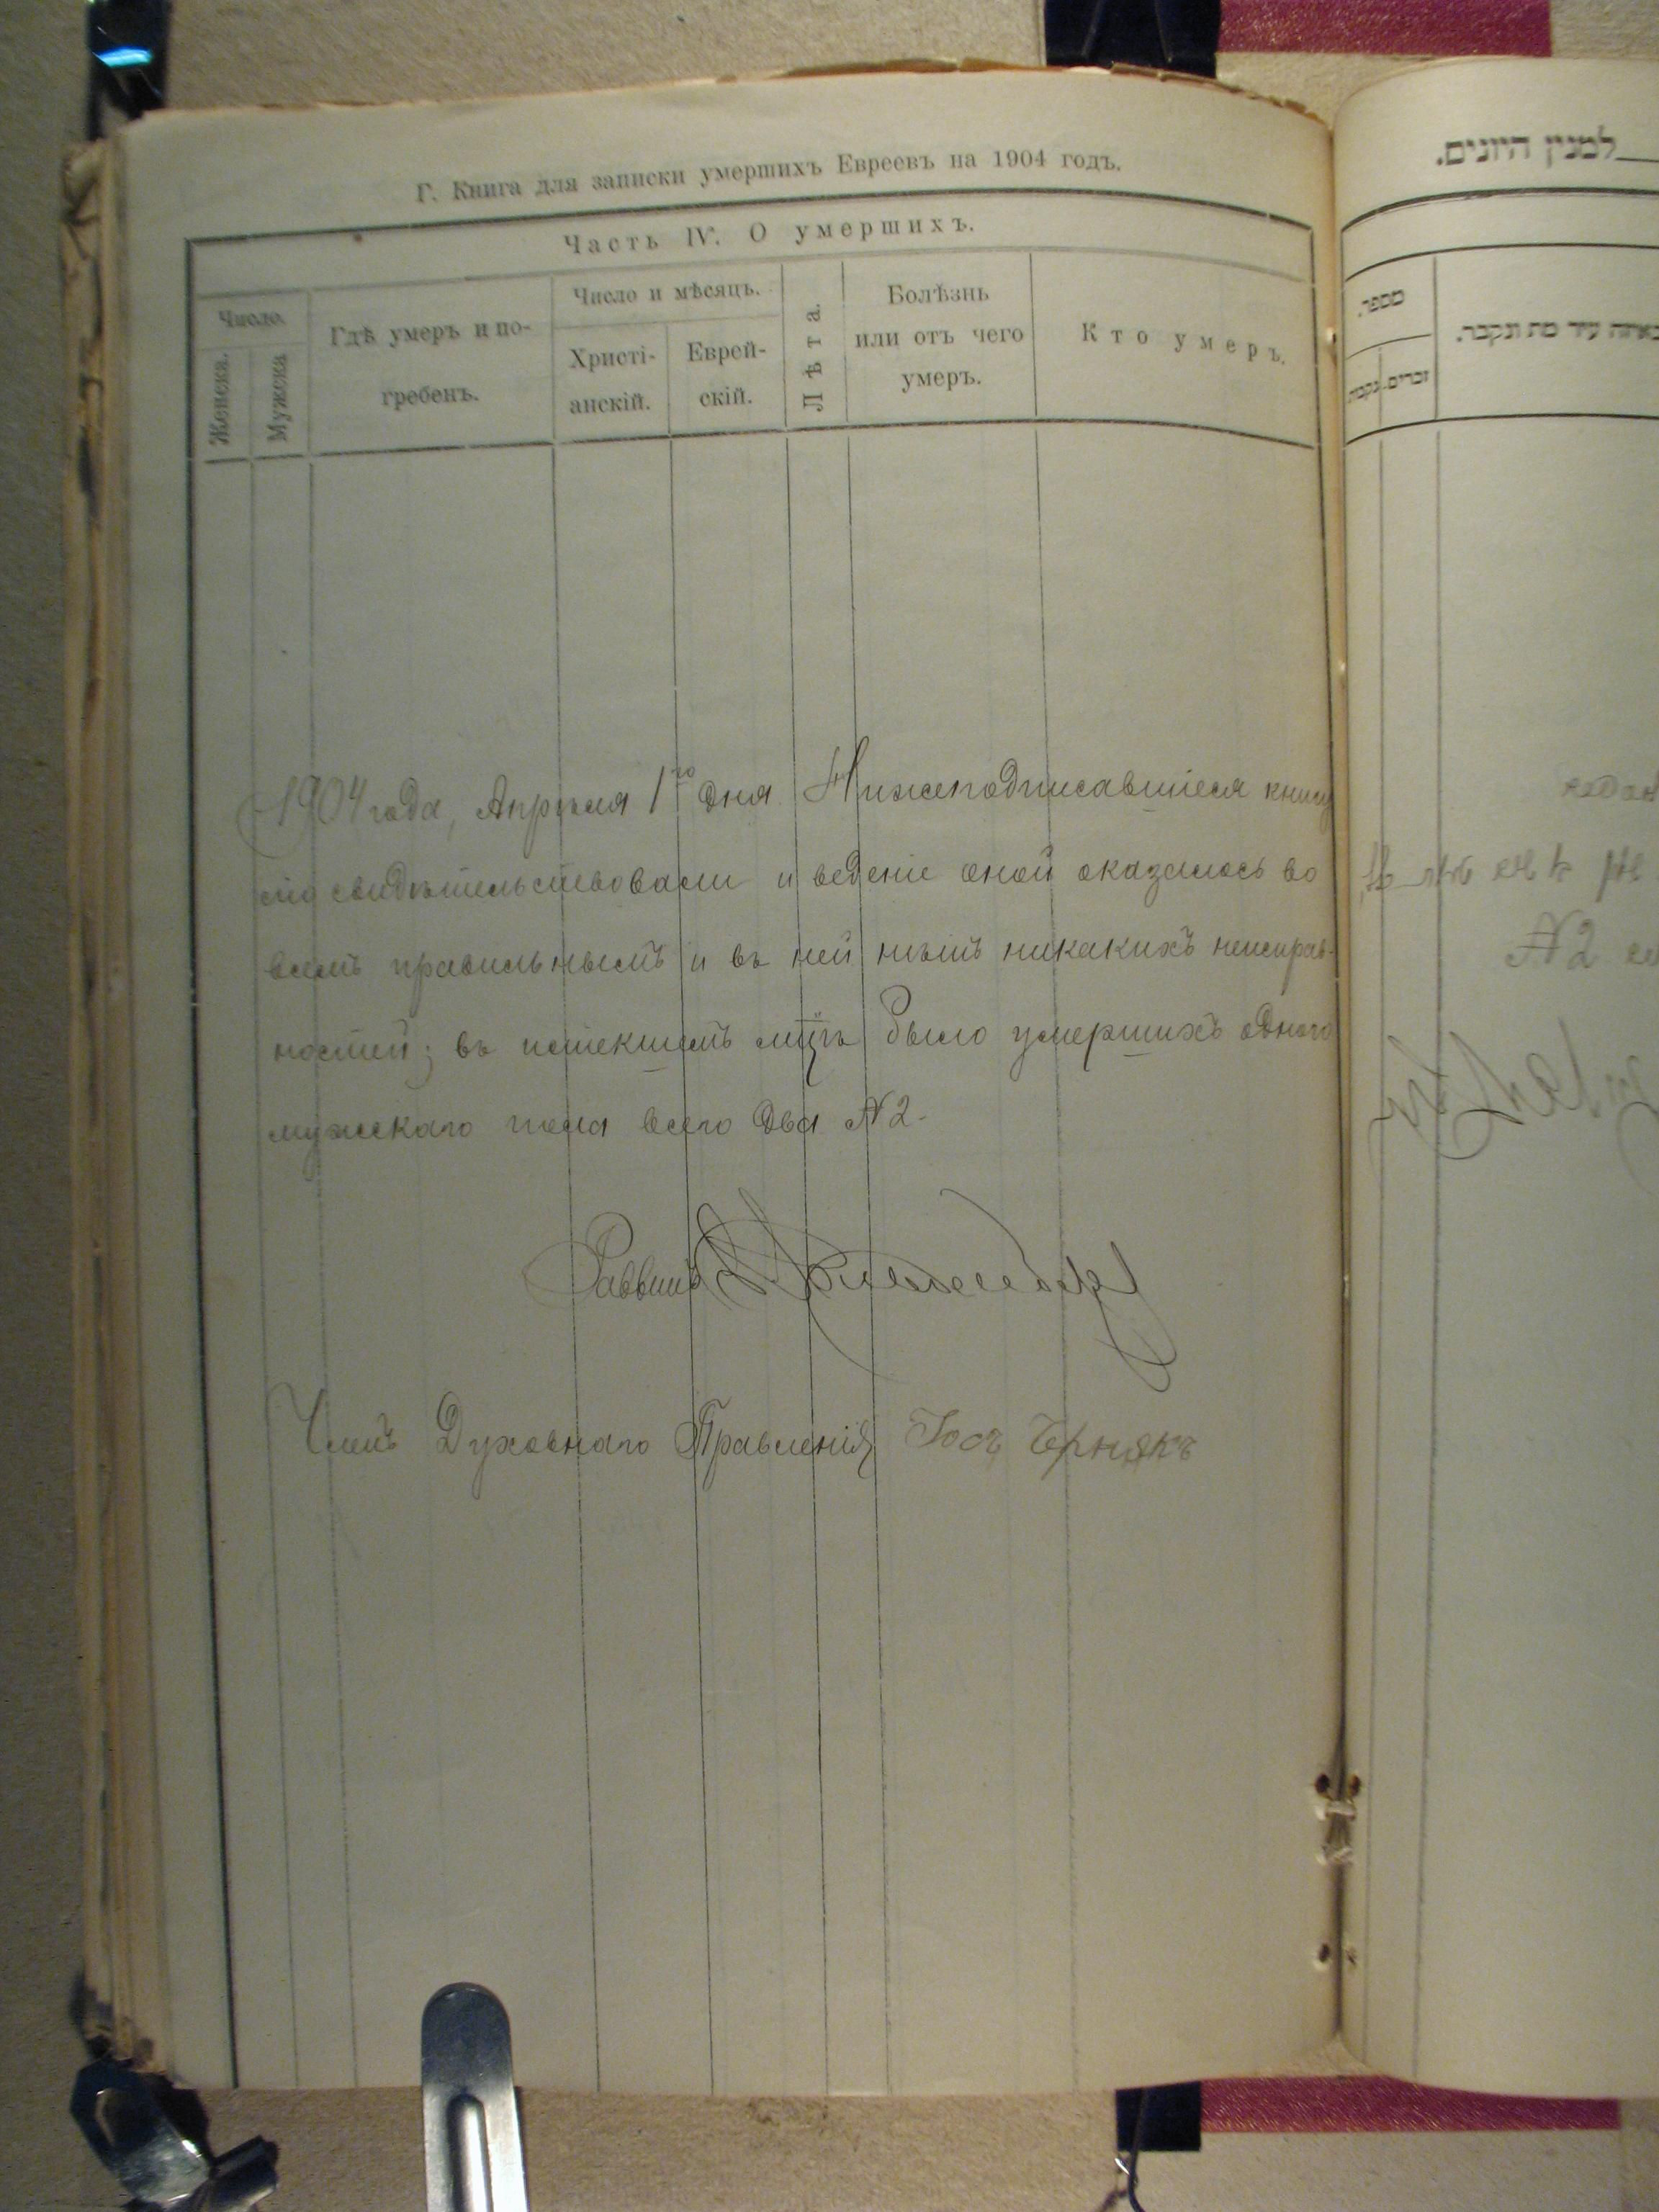 Г. Книга для записки умершихъ Евреевъ на 1904 годъ.
Часть IV. О умершихъ.
Число.
Женска.
Мужска
Гдѣ умеръ и по-
гребенъ.
Число и мѣсяцъ.
Христі-
анскій.
Еврей-
скій.
Лѣта.
Болѣзнь
или отъ чего
умеръ.
Кто умеръ.
1904 года, Апрѣля 1го дня Нижеподписавшіеся книгу
сію свидѣтельствовали и веденіе оной оказалось во
всемъ правильнымъ и въ ней нѣтъ никакихъ неисправ-
ностей; въ истекшемъ мцѣ было умершихъ одного
мужскаго пола всего два №2.
Раввинъ
Членъ Духовнаго Правленія Іосъ Чернякъ
למנין היונים.
מספר.
זכרים
נקבות
באיזה עיר מת ונקבר.
№2